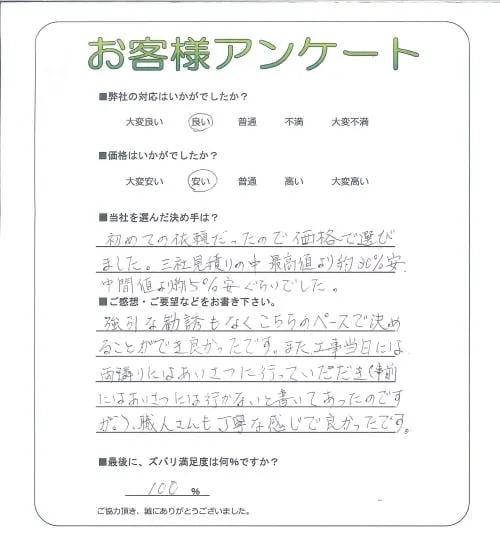 お客様アンケート
■弊社の対応はいかがでしたか？
大変良い 良い 普通 不満 大変不満
■価格はいかがでしたか？
大変安い 安い 普通 高い 大変高い
■当社を選んだ決め手は？
初めての依頼だったので価格で選び
ました。三社見積りの中最高値より約30%安.
中間値より約5%安ぐらいでした。
■ご感想・ご要望などをお書き下さい。
強引な勧誘もなくこちらのペースで決め
ることができ良かったです。また、工事当日には
両隣りにはあいさつに行っていただき(事前
にはあいさつには行かないと書いてあったのです
が。)、職人さんも丁寧な感じで良かったです。
■最後に、ズバリ満足度は何%ですか？
100 %
ご協力頂き、誠にありがとうございました。